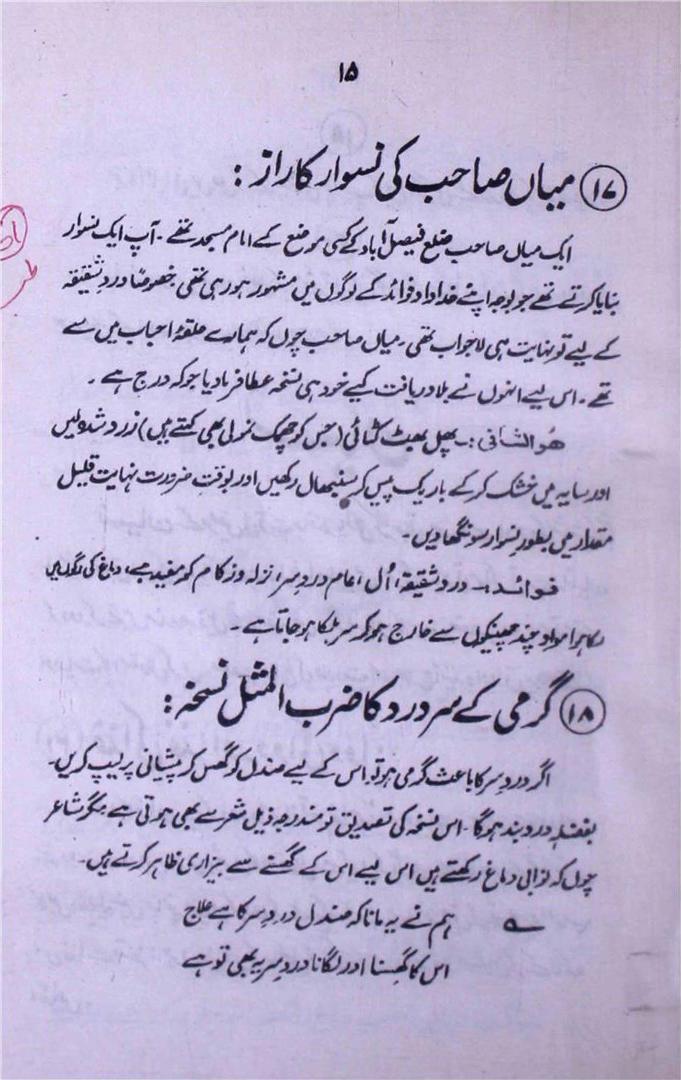 ۱۵
۱۷ میاں صاحب کی نسوار کا راز :
ایک میاں صاحب ضلع فیصل آباد کے کسی موضع کے امام مسجد تھے۔ آپ ایک نسوار
بنایا کرتے تھے جو بوجہ اپنے خداداد فوائد کے لوگوں میں مشہور ہو رہی تھی خصوصاً دردِ شقیقہ
کے لیے تو نہایت ہی لاجواب تھی۔ میاں صاحب چوں کہ ہمارے حلقۂ احباب میں سے
تھے۔ اس لیے انہوں نے بلا دریافت کیے خود ہی نسخہ عطا فرما دیا جو کہ درج ہے ۔
ھوالشافی :۔ پھل بھٹ کٹائی (جس کو چمک نمولی بھی کہتے ہیں) زرد شدہ لیں
اور سایہ میں خشک کر کے باریک پیس کر سنبھال رکھیں اور بوقتِ ضرورت نہایت قلیل
مقدار میں بطور نسوار سونگھا دیں۔
فوائد :۔ دردِ شقیقہ، اُل، عام دردِ سر، نزلہ و زکام کو مفید ہے، دماغ کی
رکا ہوا مواد چند چھینکوں سے خارج ہو کر سر ہلکا ہو جاتا ہے ۔
۱۸ گرمی کے سر درد کا ضرب المثل نسخہ :
اگر دردِ سر کا باعث گرمی ہو تو اس کے لیے صندل کو گھس کر پیشانی پر لیپ کریں۔
بفضلہٖ درد بند ہوگا۔ اس نسخہ کی تصدیق تو مندرجہ ذیل شعر سے بھی ہوتی ہے مگر شاعر
چوں کہ نوابی دماغ رکھتے ہیں اس لیے اس کے گھسنے سے بیزاری ظاہر کرتے ہیں۔
ہم نے یہ مانا کہ صندل دردِ سر کا ہے علاج
اس کا گھسنا اور لگانا دردِ سر یہ بھی تو ہے